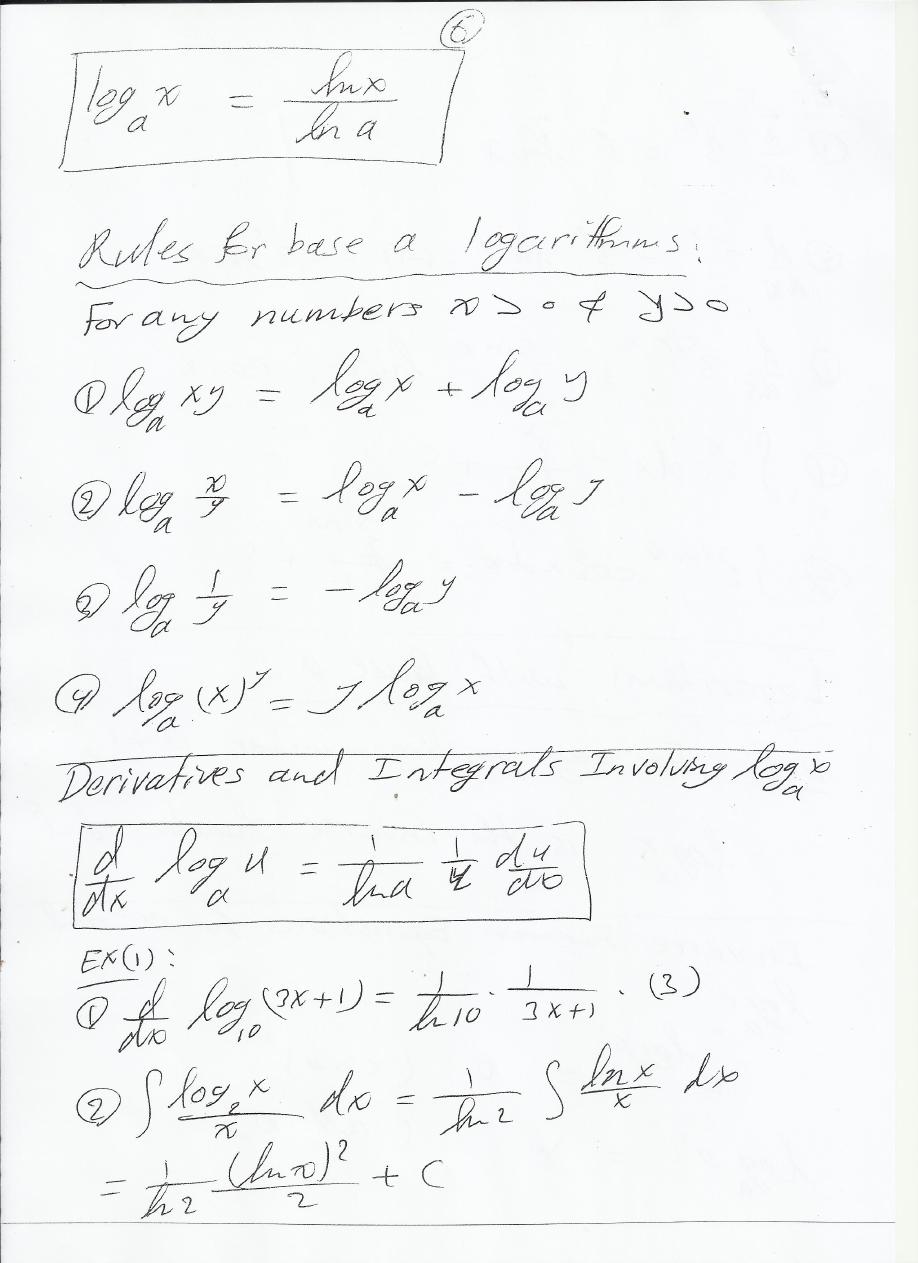 6
log_a x = ln x / ln a
Rules for base a logarithms.
For any numbers x > 0 & y > 0
① log_a xy = log_a x + log_a y
② log_a x/y = log_a x - log_a y
③ log_a 1/y = - log_a y
④ log_a (x)^y = y log_a x
Derivatives and Integrals Involving log_a x
d/dx log_a u = 1/ln a 1/u du/dx
EX(1):
① d/dx log_10 (3x+1) = 1/ln 10 · 1/(3x+1) · (3)
② ∫ log_2 x / x dx = 1/ln 2 ∫ ln x / x dx
= 1/ln 2 (ln x)^2 / 2 + C